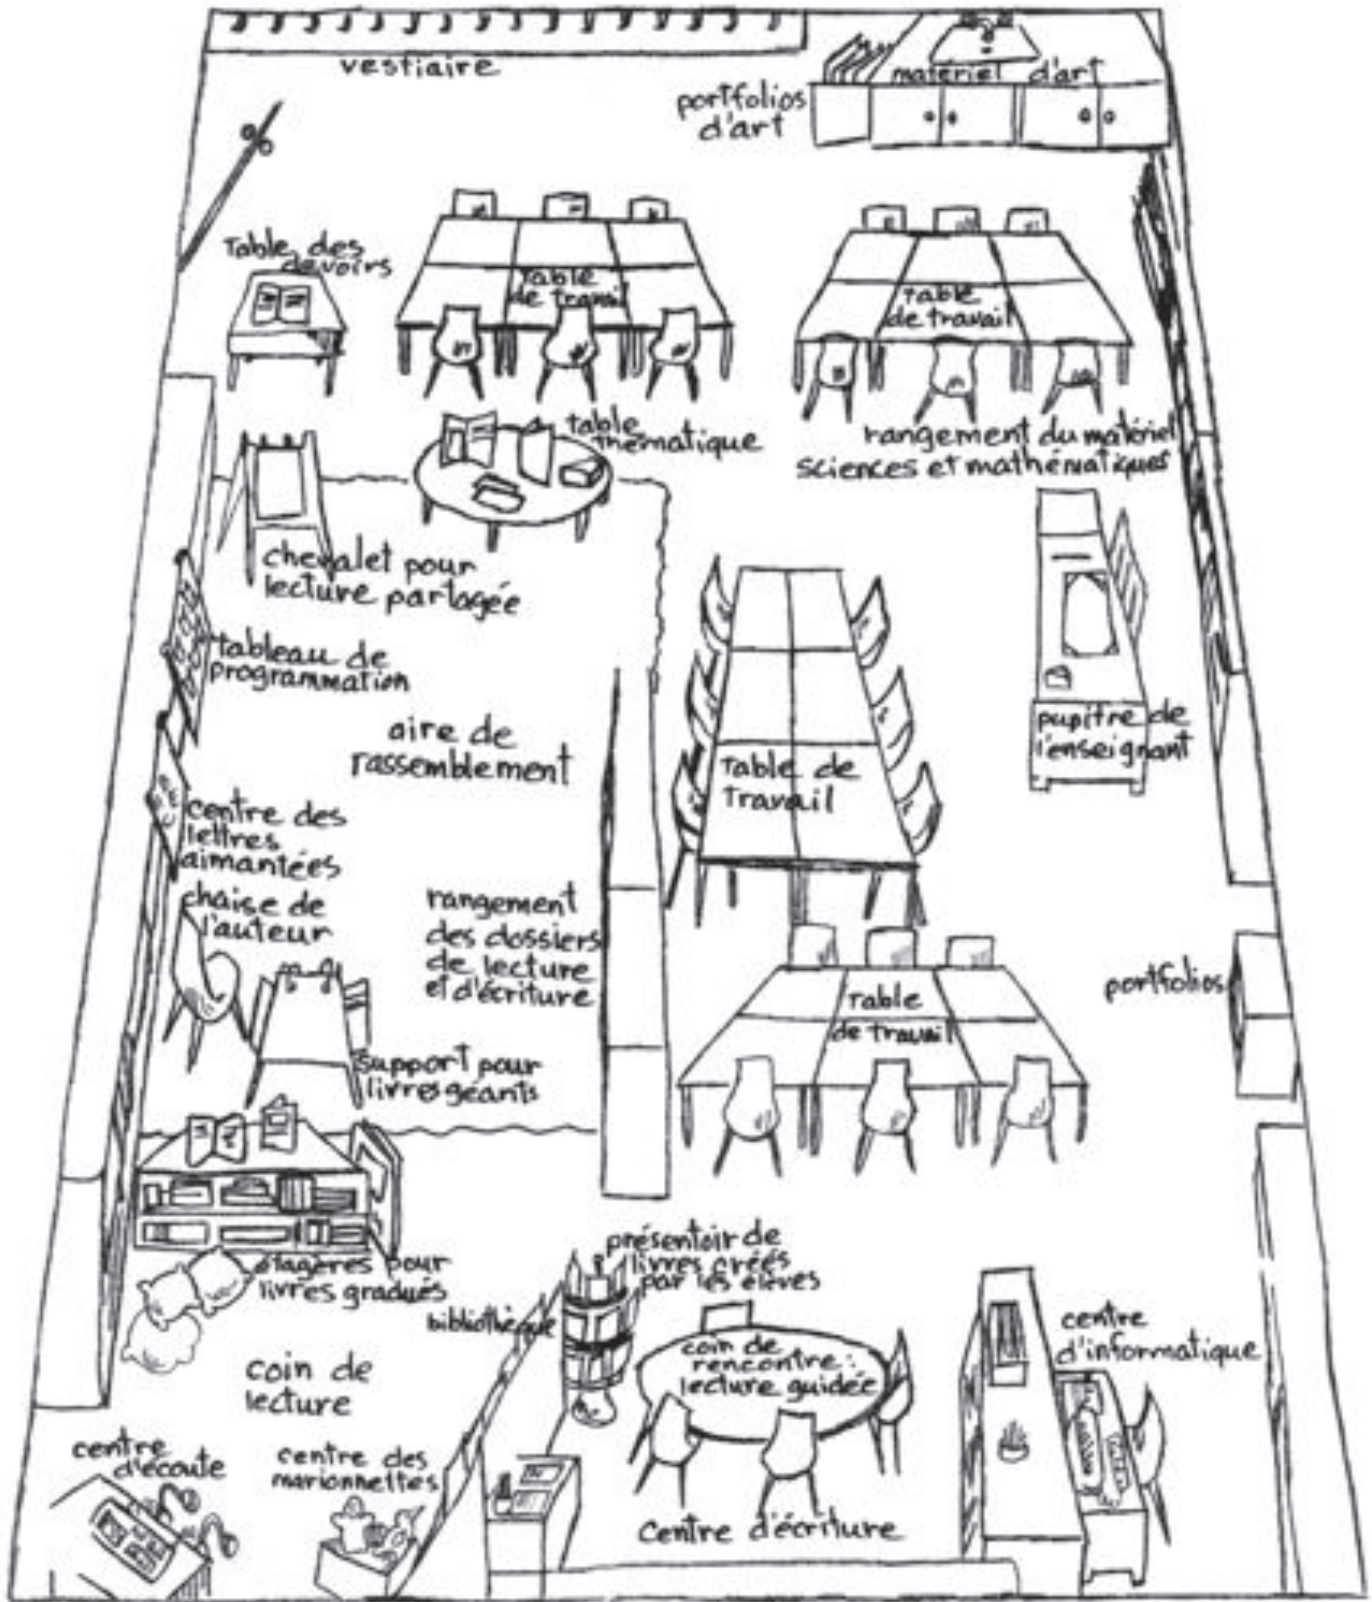 vestiaire
matériel d'art
portfolios
d'art
Table des
devoirs
Table
de travail
Table
de travail
table
thématique
rangement du matériel
sciences et mathématiques
chevalet pour
lecture partagée
tableau de
programmation
aire de
rassemblement
Table de
Travail
pupitre de
l'enseignant
centre des
lettres
aimantées
chaise de
l'auteur
rangement
des dossiers
de lecture
et d'écriture
Table
de travail
portfolios
support pour
livres géants
étagères pour
livres gradués
présentoir de
livres créés
par les élèves
bibliothèque
coin de
rencontre:
lecture guidée
centre
d'informatique
coin de
lecture
centre
d'écoute
centre des
marionnettes
Centre d'écriture